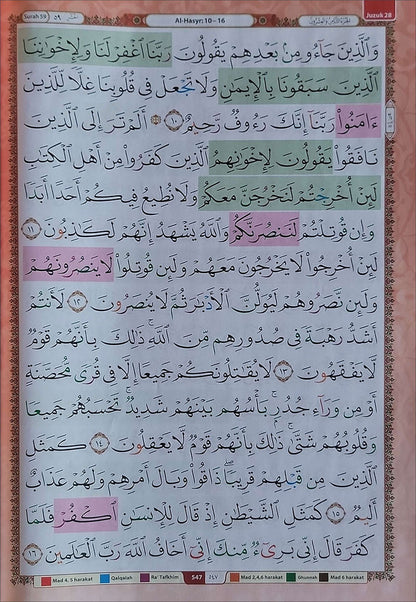 Surah 59 الحشر ٥٩
Al-Hasyr: 10 - 16
الجزء الثامن والعشرون Juzuk 28
وَالَّذِينَ جَاءُو مِنْ بَعْدِهِمْ يَقُولُونَ رَبَّنَا اغْفِرْ لَنَا وَلِإِخْوَانِنَا
الَّذِينَ سَبَقُونَا بِالْإِيمَٰنِ وَلَا تَجْعَلْ فِي قُلُوبِنَا غِلًّا لِلَّذِينَ
ءَامَنُوا رَبَّنَا إِنَّكَ رَءُوفٌ رَحِيمٌ ١٠ أَلَمْ تَرَ إِلَى الَّذِينَ
نَافَقُوا يَقُولُونَ لِإِخْوَانِهِمُ الَّذِينَ كَفَرُوا مِنْ أَهْلِ الْكِتَٰبِ
لَئِنْ أُخْرِجْتُمْ لَنَخْرُجَنَّ مَعَكُمْ وَلَا نُطِيعُ فِيكُمْ أَحَدًا أَبَدًا
وَإِنْ قُوتِلْتُمْ لَنَنْصُرَنَّكُمْ وَاللَّهُ يَشْهَدُ إِنَّهُمْ لَكَٰذِبُونَ ١١
لَئِنْ أُخْرِجُوا لَا يَخْرُجُونَ مَعَهُمْ وَلَئِنْ قُوتِلُوا لَا يَنْصُرُونَهُمْ
وَلَئِنْ نَصَرُوهُمْ لَيُوَلُّنَّ الْأَدْبَٰرَ ثُمَّ لَا يُنْصَرُونَ ١٢ لَأَنْتُمْ
أَشَدُّ رَهْبَةً فِي صُدُورِهِمْ مِنَ اللَّهِ ذَٰلِكَ بِأَنَّهُمْ قَوْمٌ
لَا يَفْقَهُونَ ١٣ لَا يُقَٰتِلُونَكُمْ جَمِيعًا إِلَّا فِي قُرًى مُحَصَّنَةٍ
أَوْ مِنْ وَرَاءِ جُدُرٍ بَأْسُهُمْ بَيْنَهُمْ شَدِيدٌ تَحْسَبُهُمْ جَمِيعًا
وَقُلُوبُهُمْ شَتَّىٰ ذَٰلِكَ بِأَنَّهُمْ قَوْمٌ لَا يَعْقِلُونَ ١٤ كَمَثَلِ
الَّذِينَ مِنْ قَبْلِهِمْ قَرِيبًا ذَاقُوا وَبَالَ أَمْرِهِمْ وَلَهُمْ عَذَابٌ
أَلِيمٌ ١٥ كَمَثَلِ الشَّيْطَٰنِ إِذْ قَالَ لِلْإِنْسَٰنِ اكْفُرْ فَلَمَّا
كَفَرَ قَالَ إِنِّي بَرِيءٌ مِنْكَ إِنِّي أَخَافُ اللَّهَ رَبَّ الْعَٰلَمِينَ ١٦
Mad 4, 5 harakat Qalqalah Ra' Tafkhim 547 ٥٤٧ Mad 2,4,6 harakat Ghunnah Mad 6 harakat